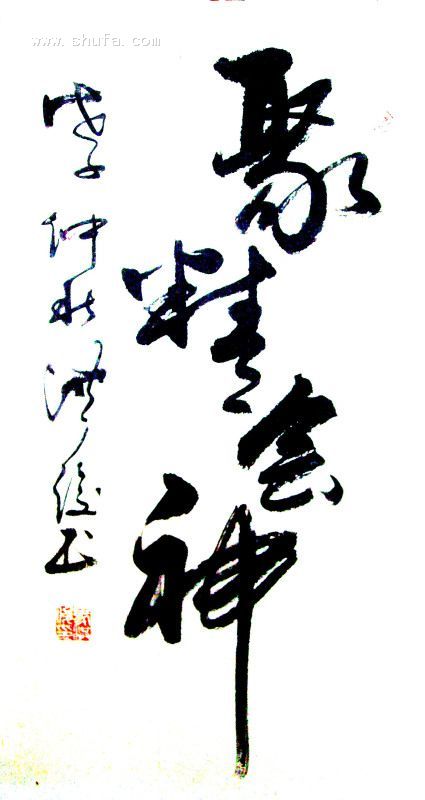 www.shufa.com
聚精会神
戊子仲秋书